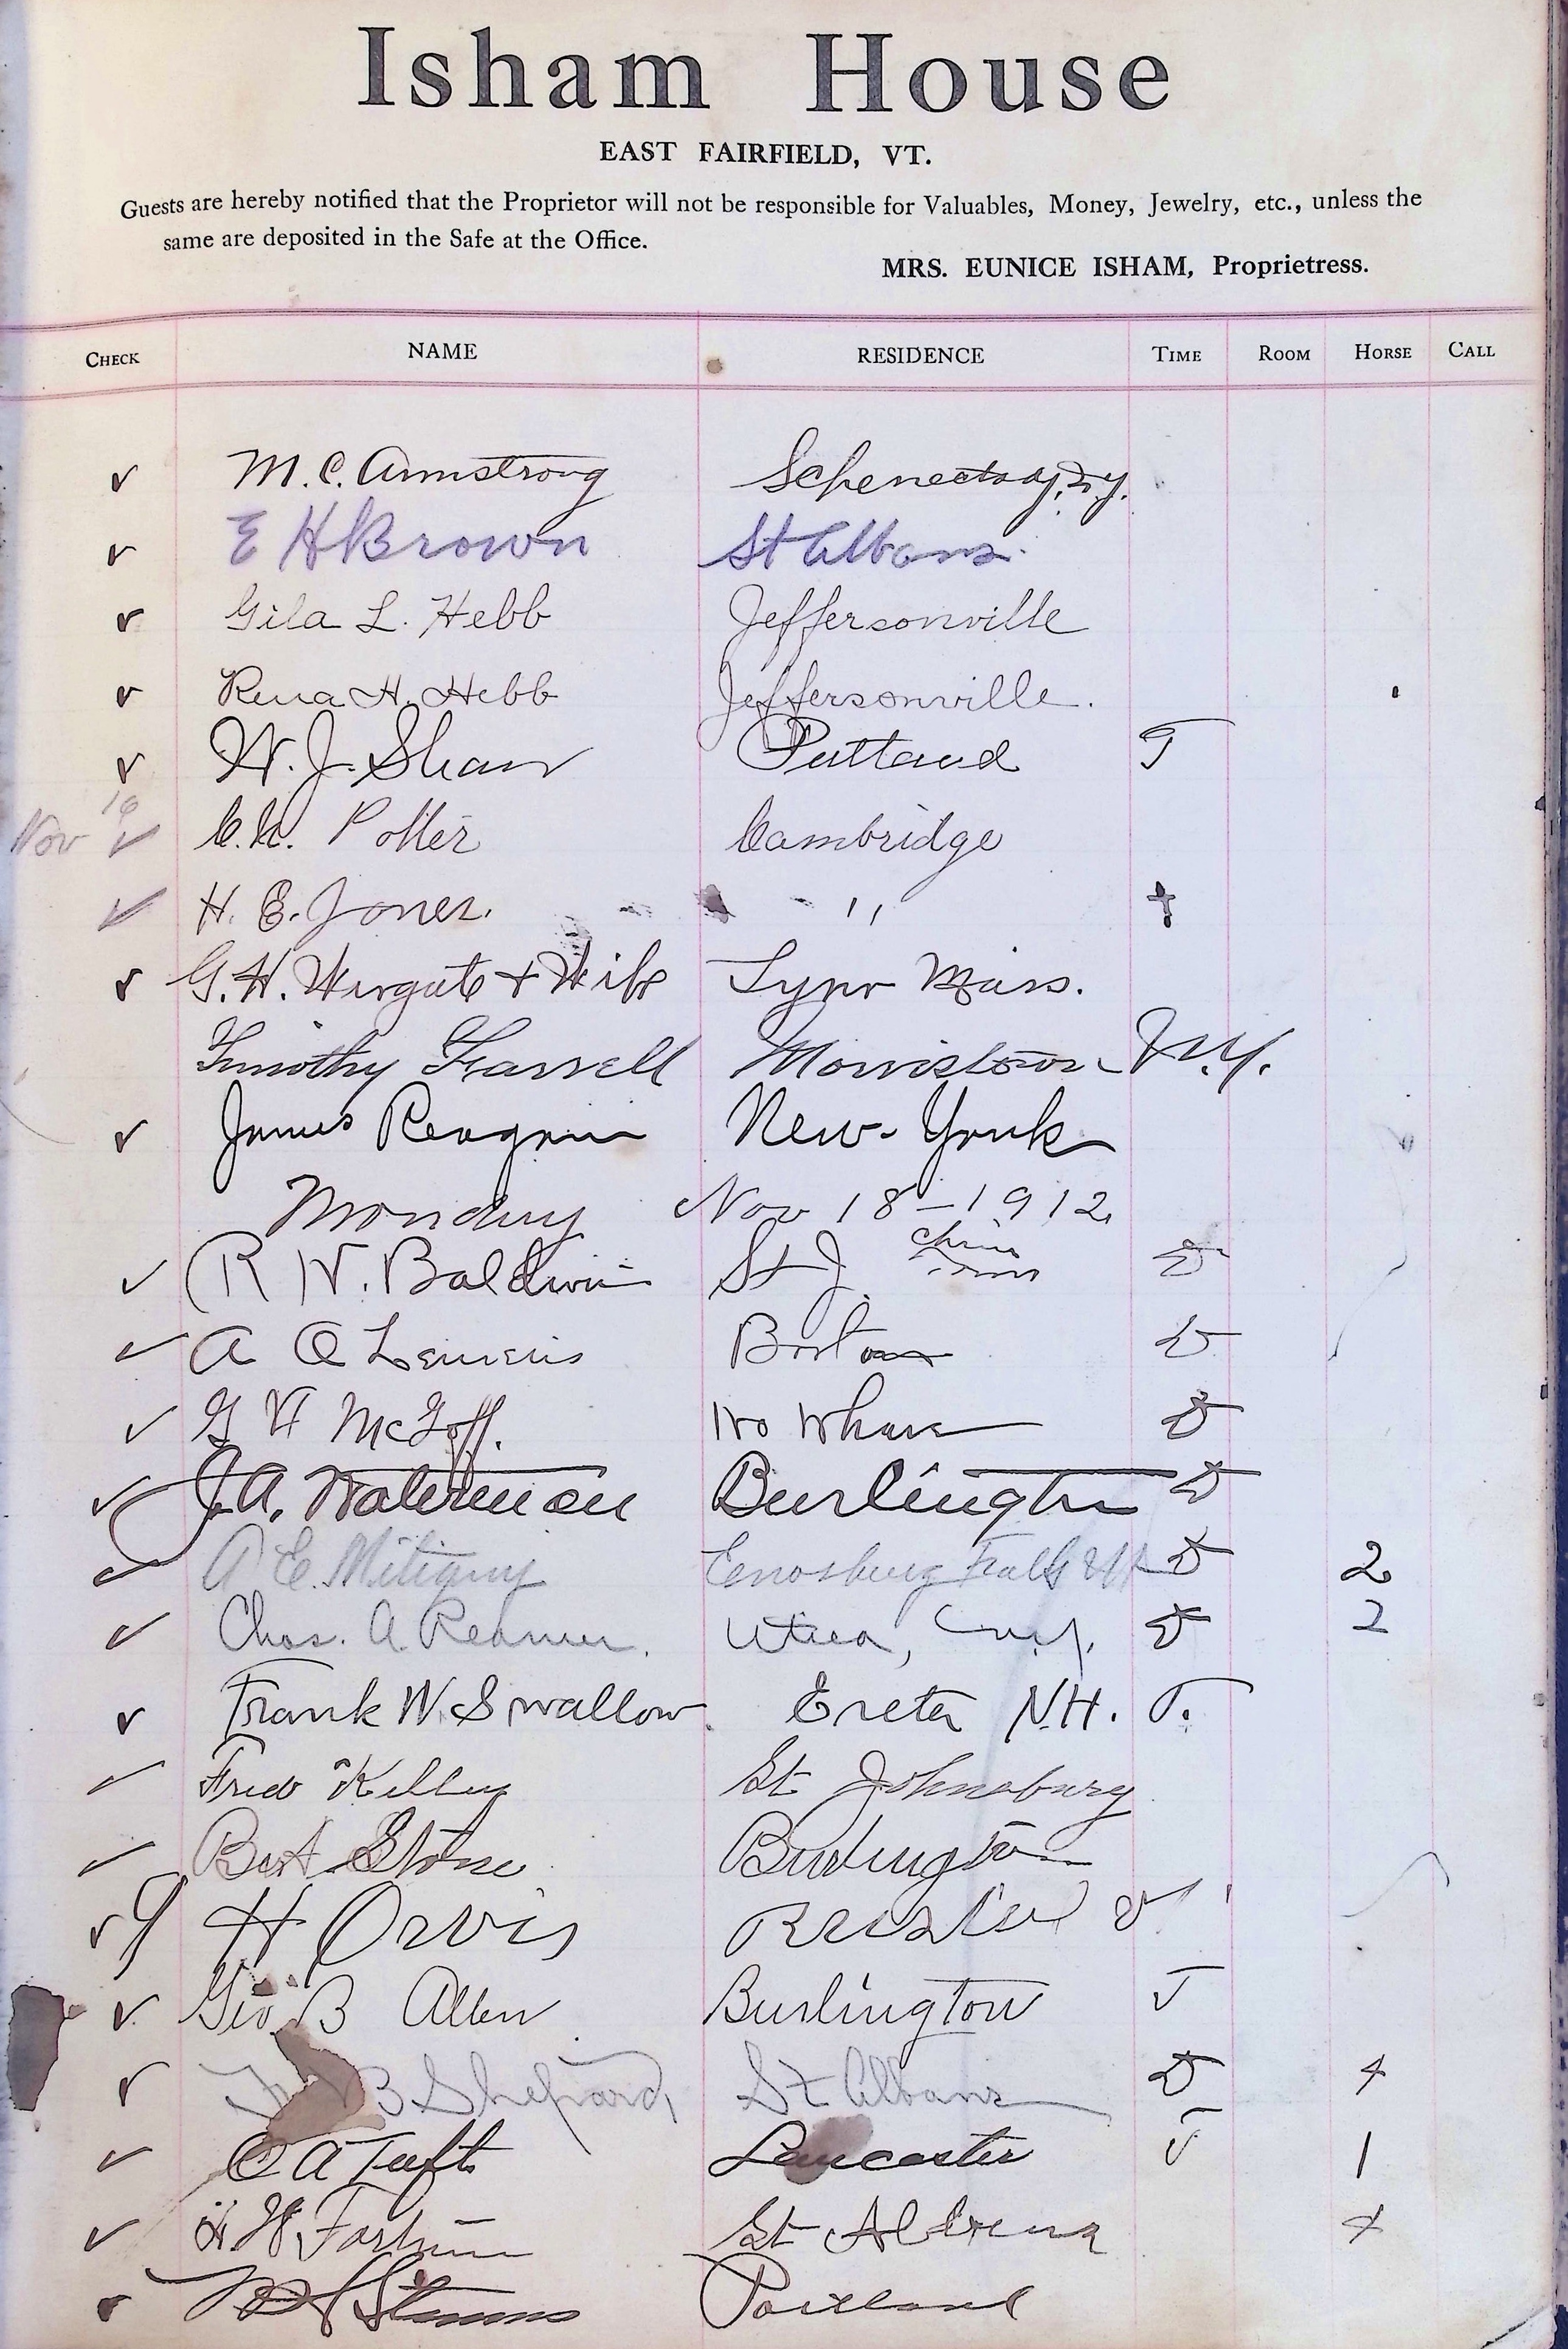 Isham House
EAST FAIRFIELD, VT.
Guests are hereby notified that the Proprietor will not be responsible for Valuables, Money, Jewelry, etc., unless the
same are deposited in the Safe at the Office.
MRS. EUNICE ISHAM, Proprietress.
CHECK NAME RESIDENCE TIME ROOM HORSE CALL
M. C. Armstrong Schenectady, N.Y.
E H Brown St Albans
Gila L. Hebb Jeffersonville
Rena H. Hebb Jeffersonville.
W. J. Shaw Rutland T
Nov 16 C. K. Potter Cambridge
H. E. Jones. " T
G. H. Wingate + Wife Lynn Mass.
Timothy Farrell Morristown N.Y.
James Reagan New-York
Monday Nov 18-1912
R W. Baldwin St J. D
A O Boston D
G H McGoff. No Where D
J. A. Waterman Burlington D
A E. Mitiguy Enosburg Falls Vt D 2
Chas. A. Reamer. Utica, N.Y. D 2
Frank W. Swallow. Exeter N.H. T.
Fred Kelley St Johnsbury
Bert Stone Burlington
H Orvis Bristol
Geo. B Allen Burlington T
B Shepard, St Albans D 4
C A Taft Lancaster T 1
St Albans 4
Portland